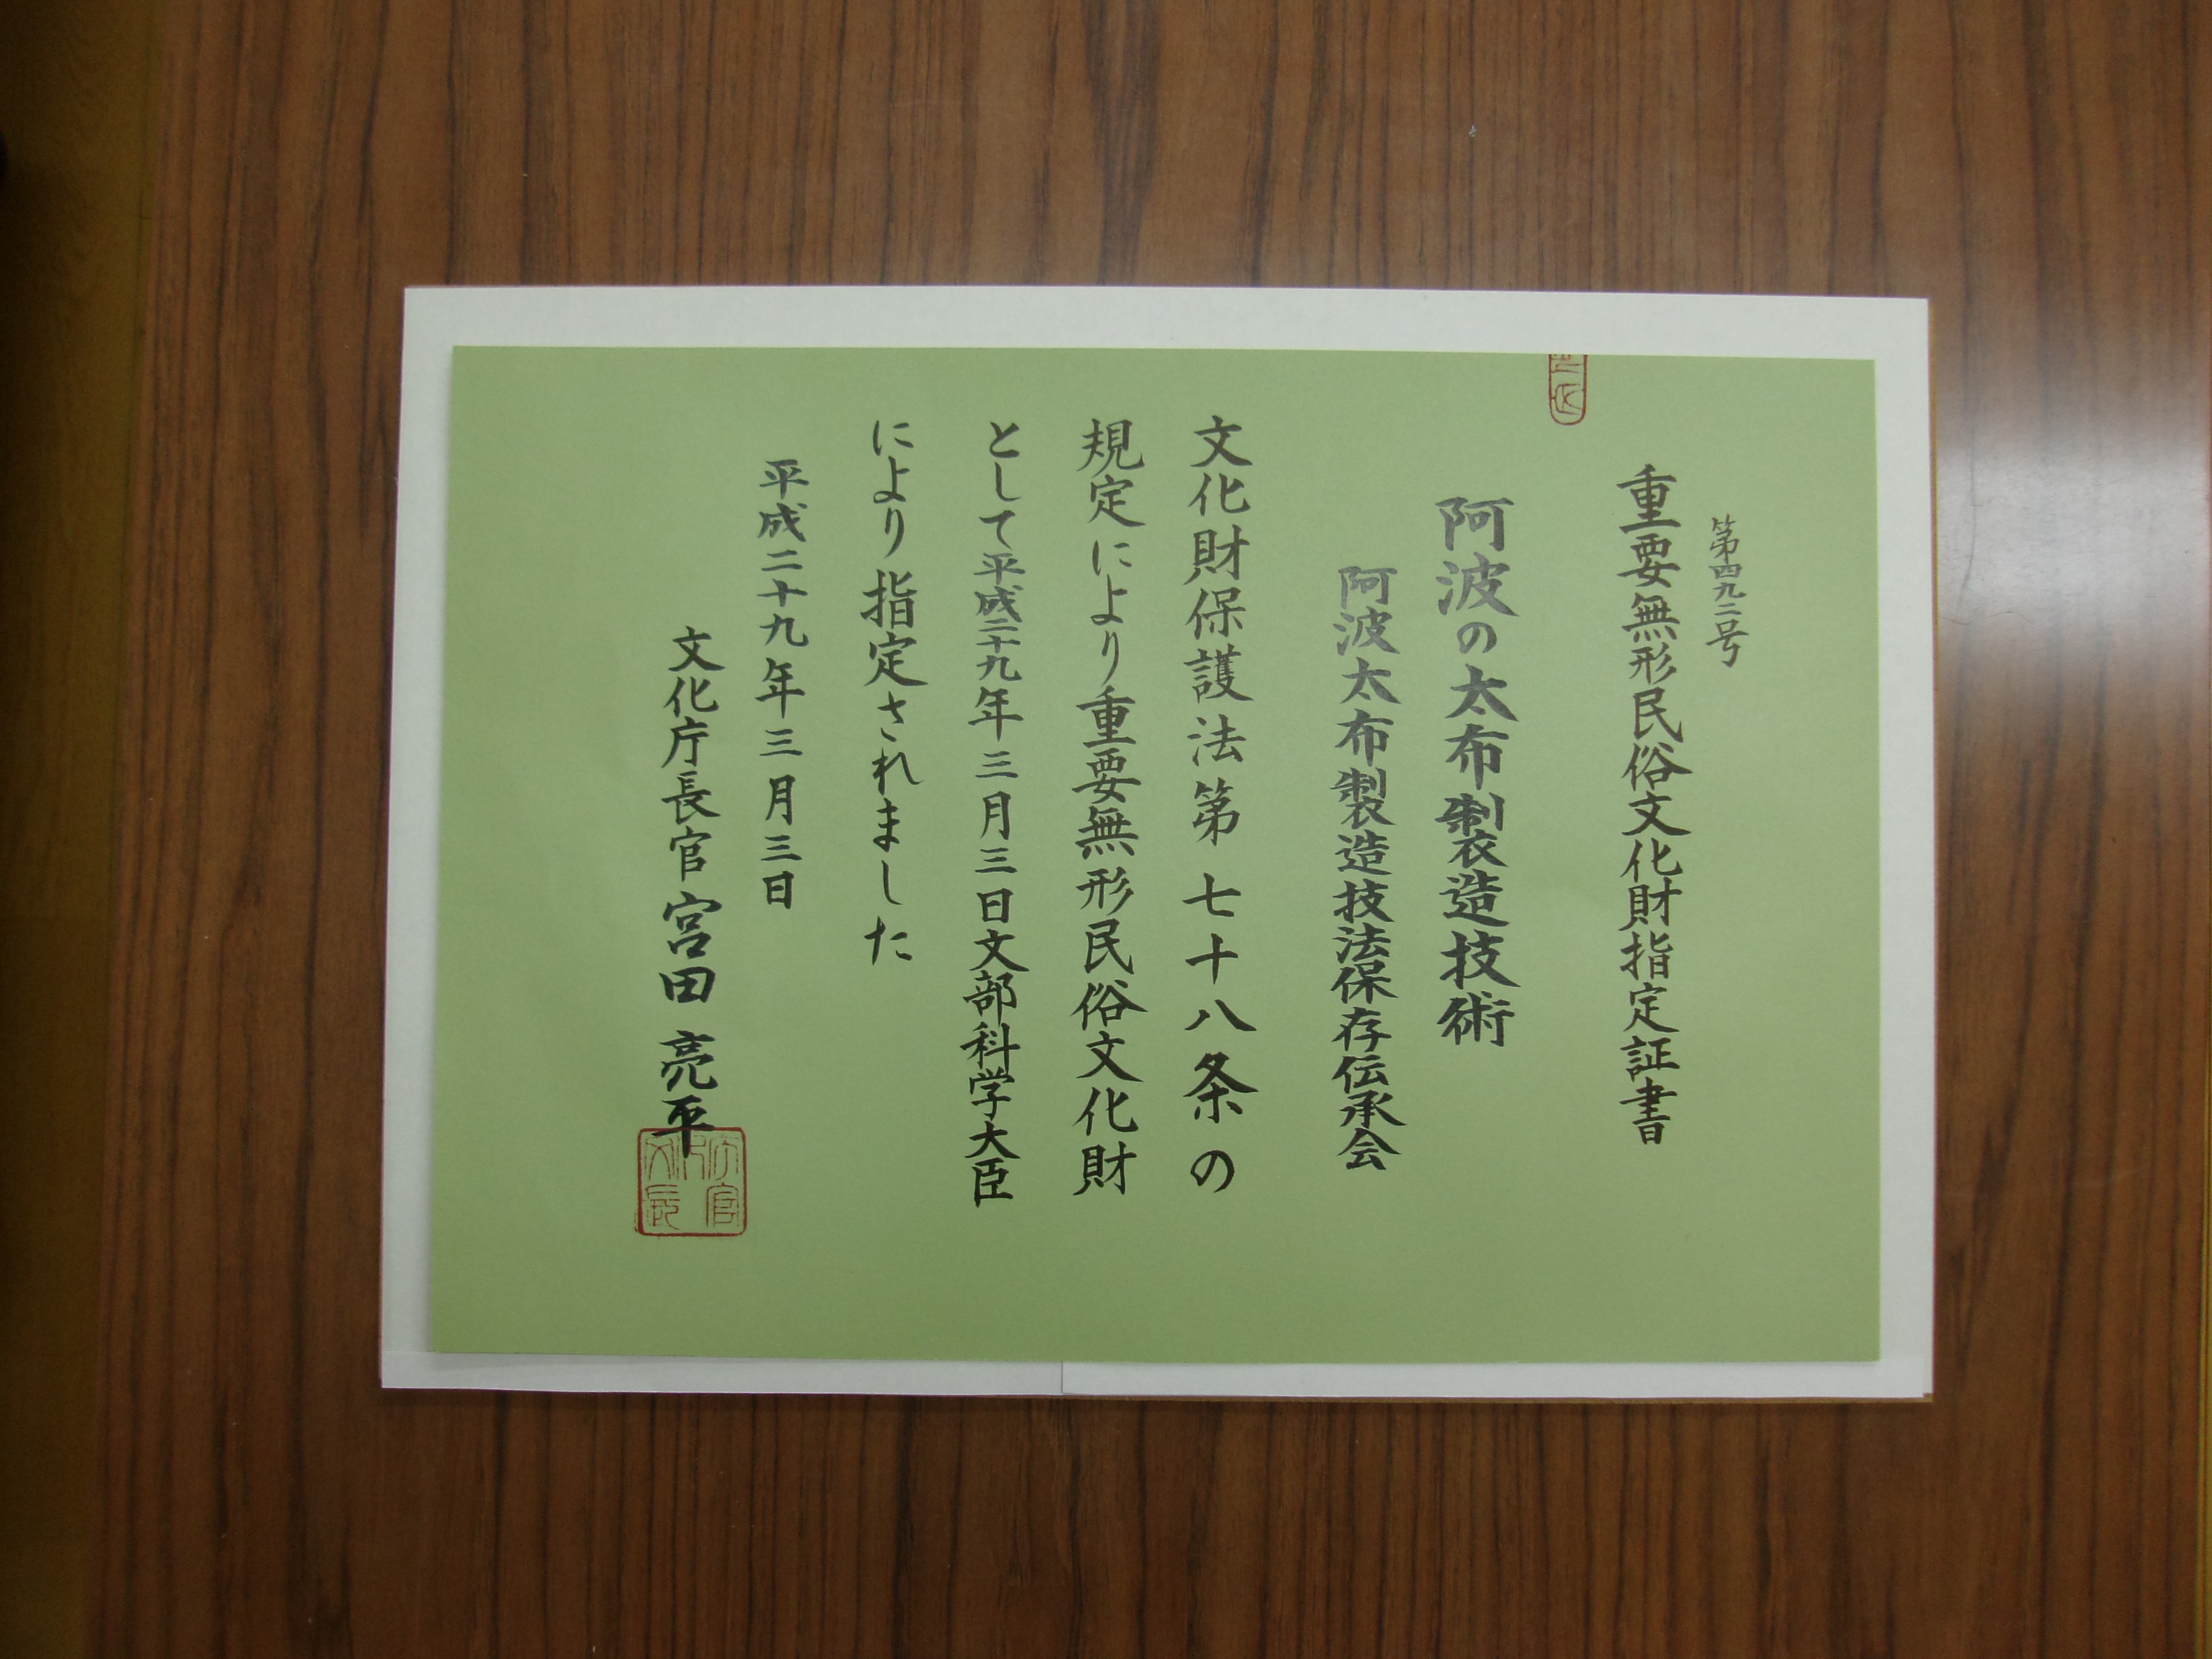 第四九二号
重要無形民俗文化財指定証書
阿波の太布製造技術
阿波太布製造技法保存伝承会
文化財保護法第七十八条の
規定により重要無形民俗文化財
として平成二十九年三月三日文部科学大臣
により指定されました
平成二十九年三月三日
文化庁長官 宮田 亮平